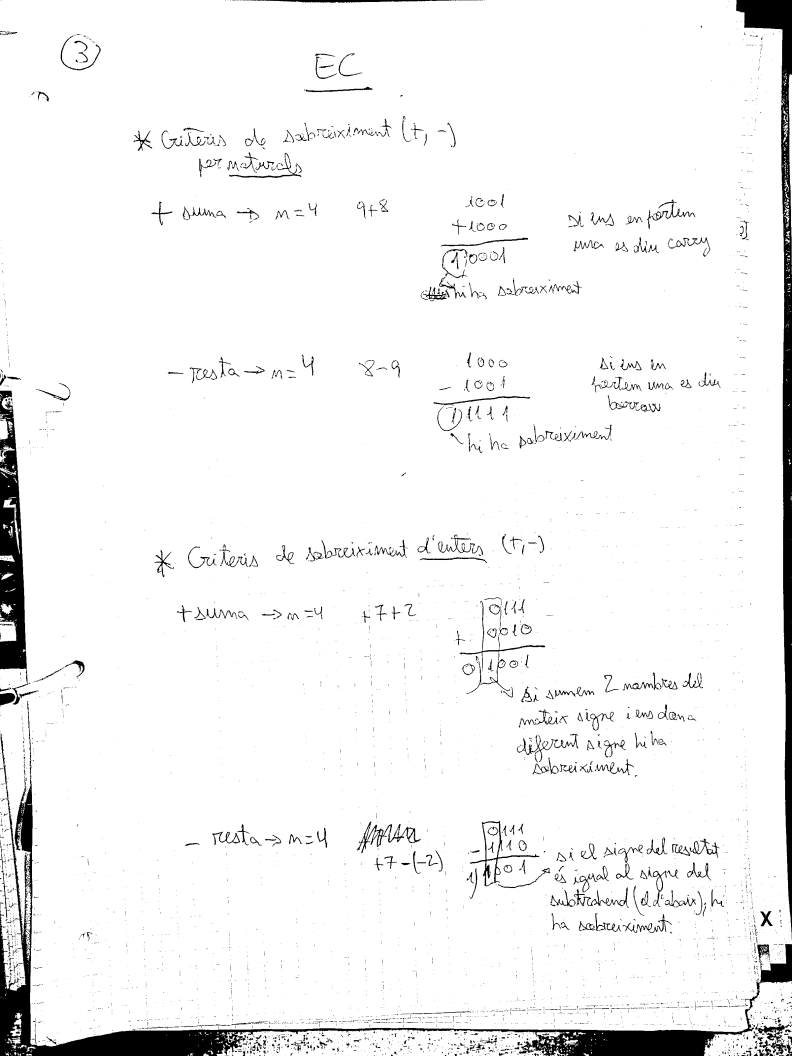 3
EC
* Criteris de sobreiximent (+, -)
per naturals
+ suma → n=4 9+8
1001
+1000
1)0001
hi ha sobreiximent
si ens en portem
una es diu carry
- resta → n=4 8-9
1000
- 1001
1)1111
hi ha sobreiximent
si ens en
portem una es diu
borrow
* Criteris de sobreiximent d'enters (+,-)
+ suma → n=4 +7+2
0111
+ 0010
0)1001
si sumem 2 nombres del
mateix signe i ens dona
diferent signe hi ha
sobreiximent.
- resta → n=4 +7-(-2)
0111
- 1110
1)1001
si el signe del resultat
és igual al signe del
subtrahend (el d'abaix), hi
ha sobreiximent.
X